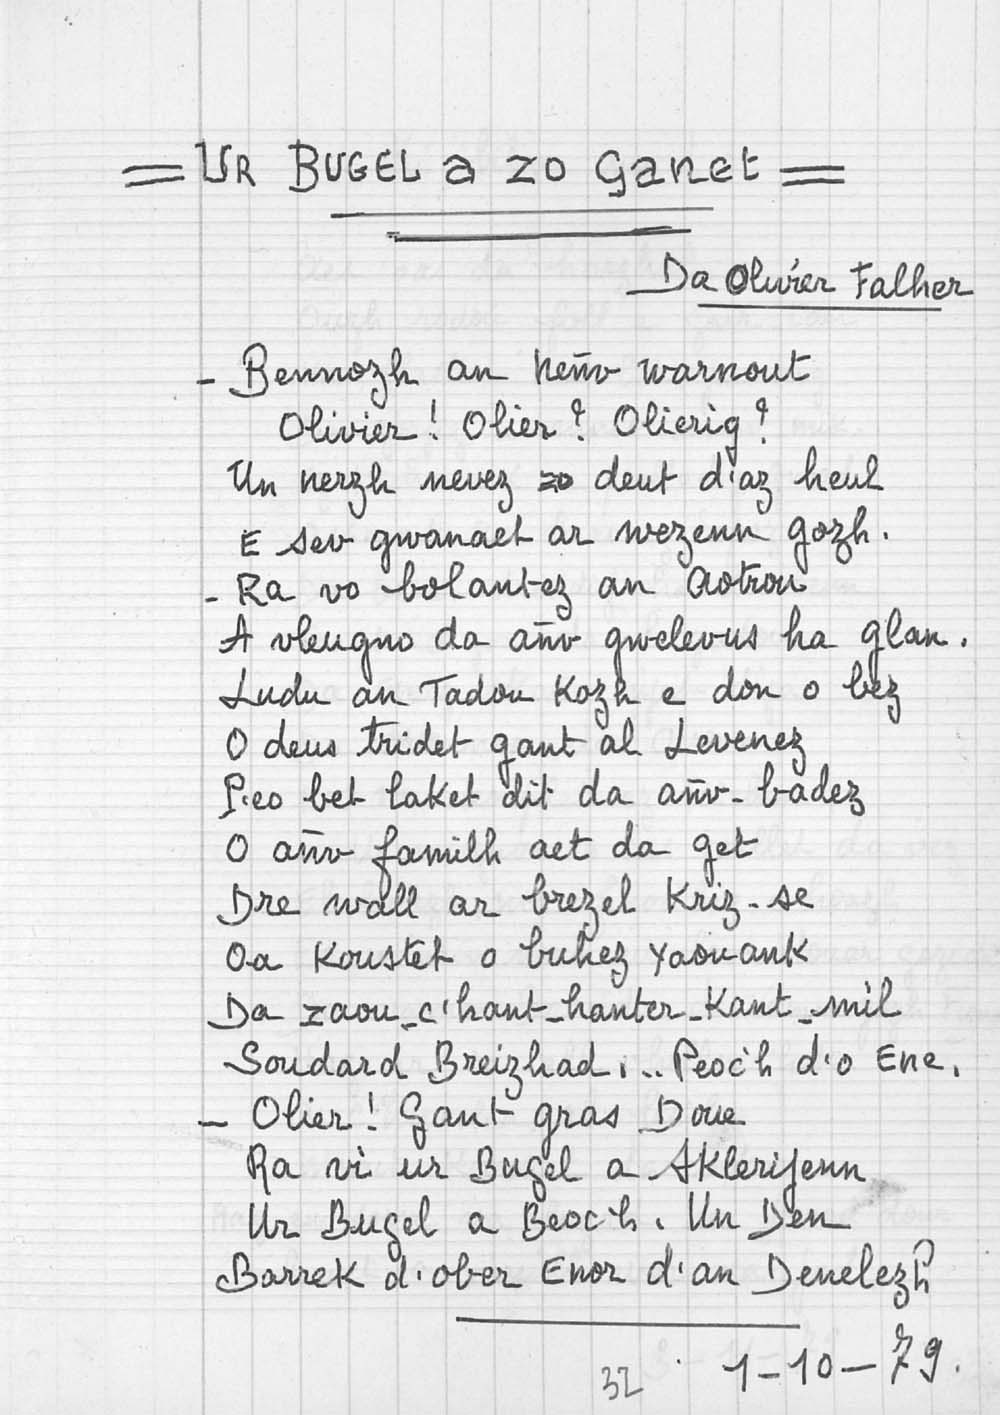 = UR BUGEL a zo ganet =
Da Olivier Falher
- Bennozh an Neñv warnout
Olivier! Olier? Olierig?
Un nerzh nevez zo deut d'az heul
E sev gwanaet ar wezenn gozh.
- Ra vo bolantez an Aotrou
A vleugno da añv gwelevus ha glan.
Ludu an Tadou Kozh e don o bez
O deus tridet gant al Levenez
P.eo bet laket dit da añv-badez
O añv familh aet da get
Dre wall ar brezel Kriz-se
Oa Koustet o buhez yaouank
Da zaou-c'hant-hanter-Kant-mil
Soudard Breizhad... Peoc'h d'o Ene.
- Olier! Gant gras Doue
Ra vi ur Bugel a Sklerijenn
Ur Bugel a Beoc'h. Un Den
Barrek d'ober Enor d'an Denelezh
1-10-79.
32